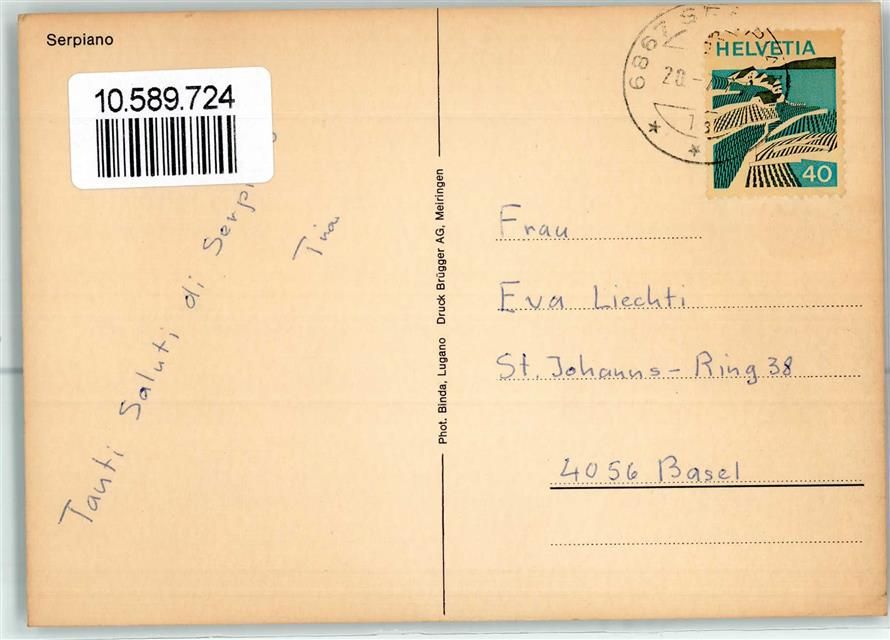 Serpiano
10.589.724
Tanti Saluti di
Tina
Phot. Binda, Lugano Druck Brügger AG, Meiringen
6867
20.
HELVETIA
40
Frau
Eva Liechti
St. Johanns-Ring 38
4056 Basel